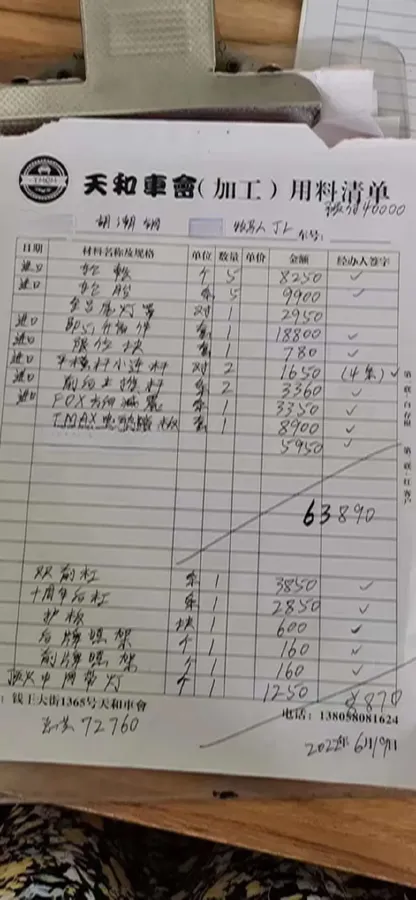 天和車會(加工)用料清单
预付40000
车号:
日期 材料名称及规格 单位 数量 单价 金额 经办人签字
进口 轮毂 个 5 8250 ✓
进口 轮胎 条 5 9900 ✓
全名尾灯罩 对 1 2950
进口 套 1 18800 ✓
进口 限位块 套 1 780 ✓
进口 平横杆小连杆 对 2 1650 (4条) ✓
进口 前后 推杆 条 2 3360 ✓
进口 FOX方向减震 条 1 3350 ✓
TMAX电动踏板 套 1 8900 ✓
5950 ✓
63890
双前杠 条 1 3850 ✓
十周年后杠 条 1 2850 ✓
护板 块 1 600 ✓
后牌照架 个 1 160 ✓
前牌照架 个 1 160 ✓
中网带灯 个 1 1250 ✓
8870
: 钱王大街1365号天和車會 电话: 138058081624
总共72760
2022年6月19日